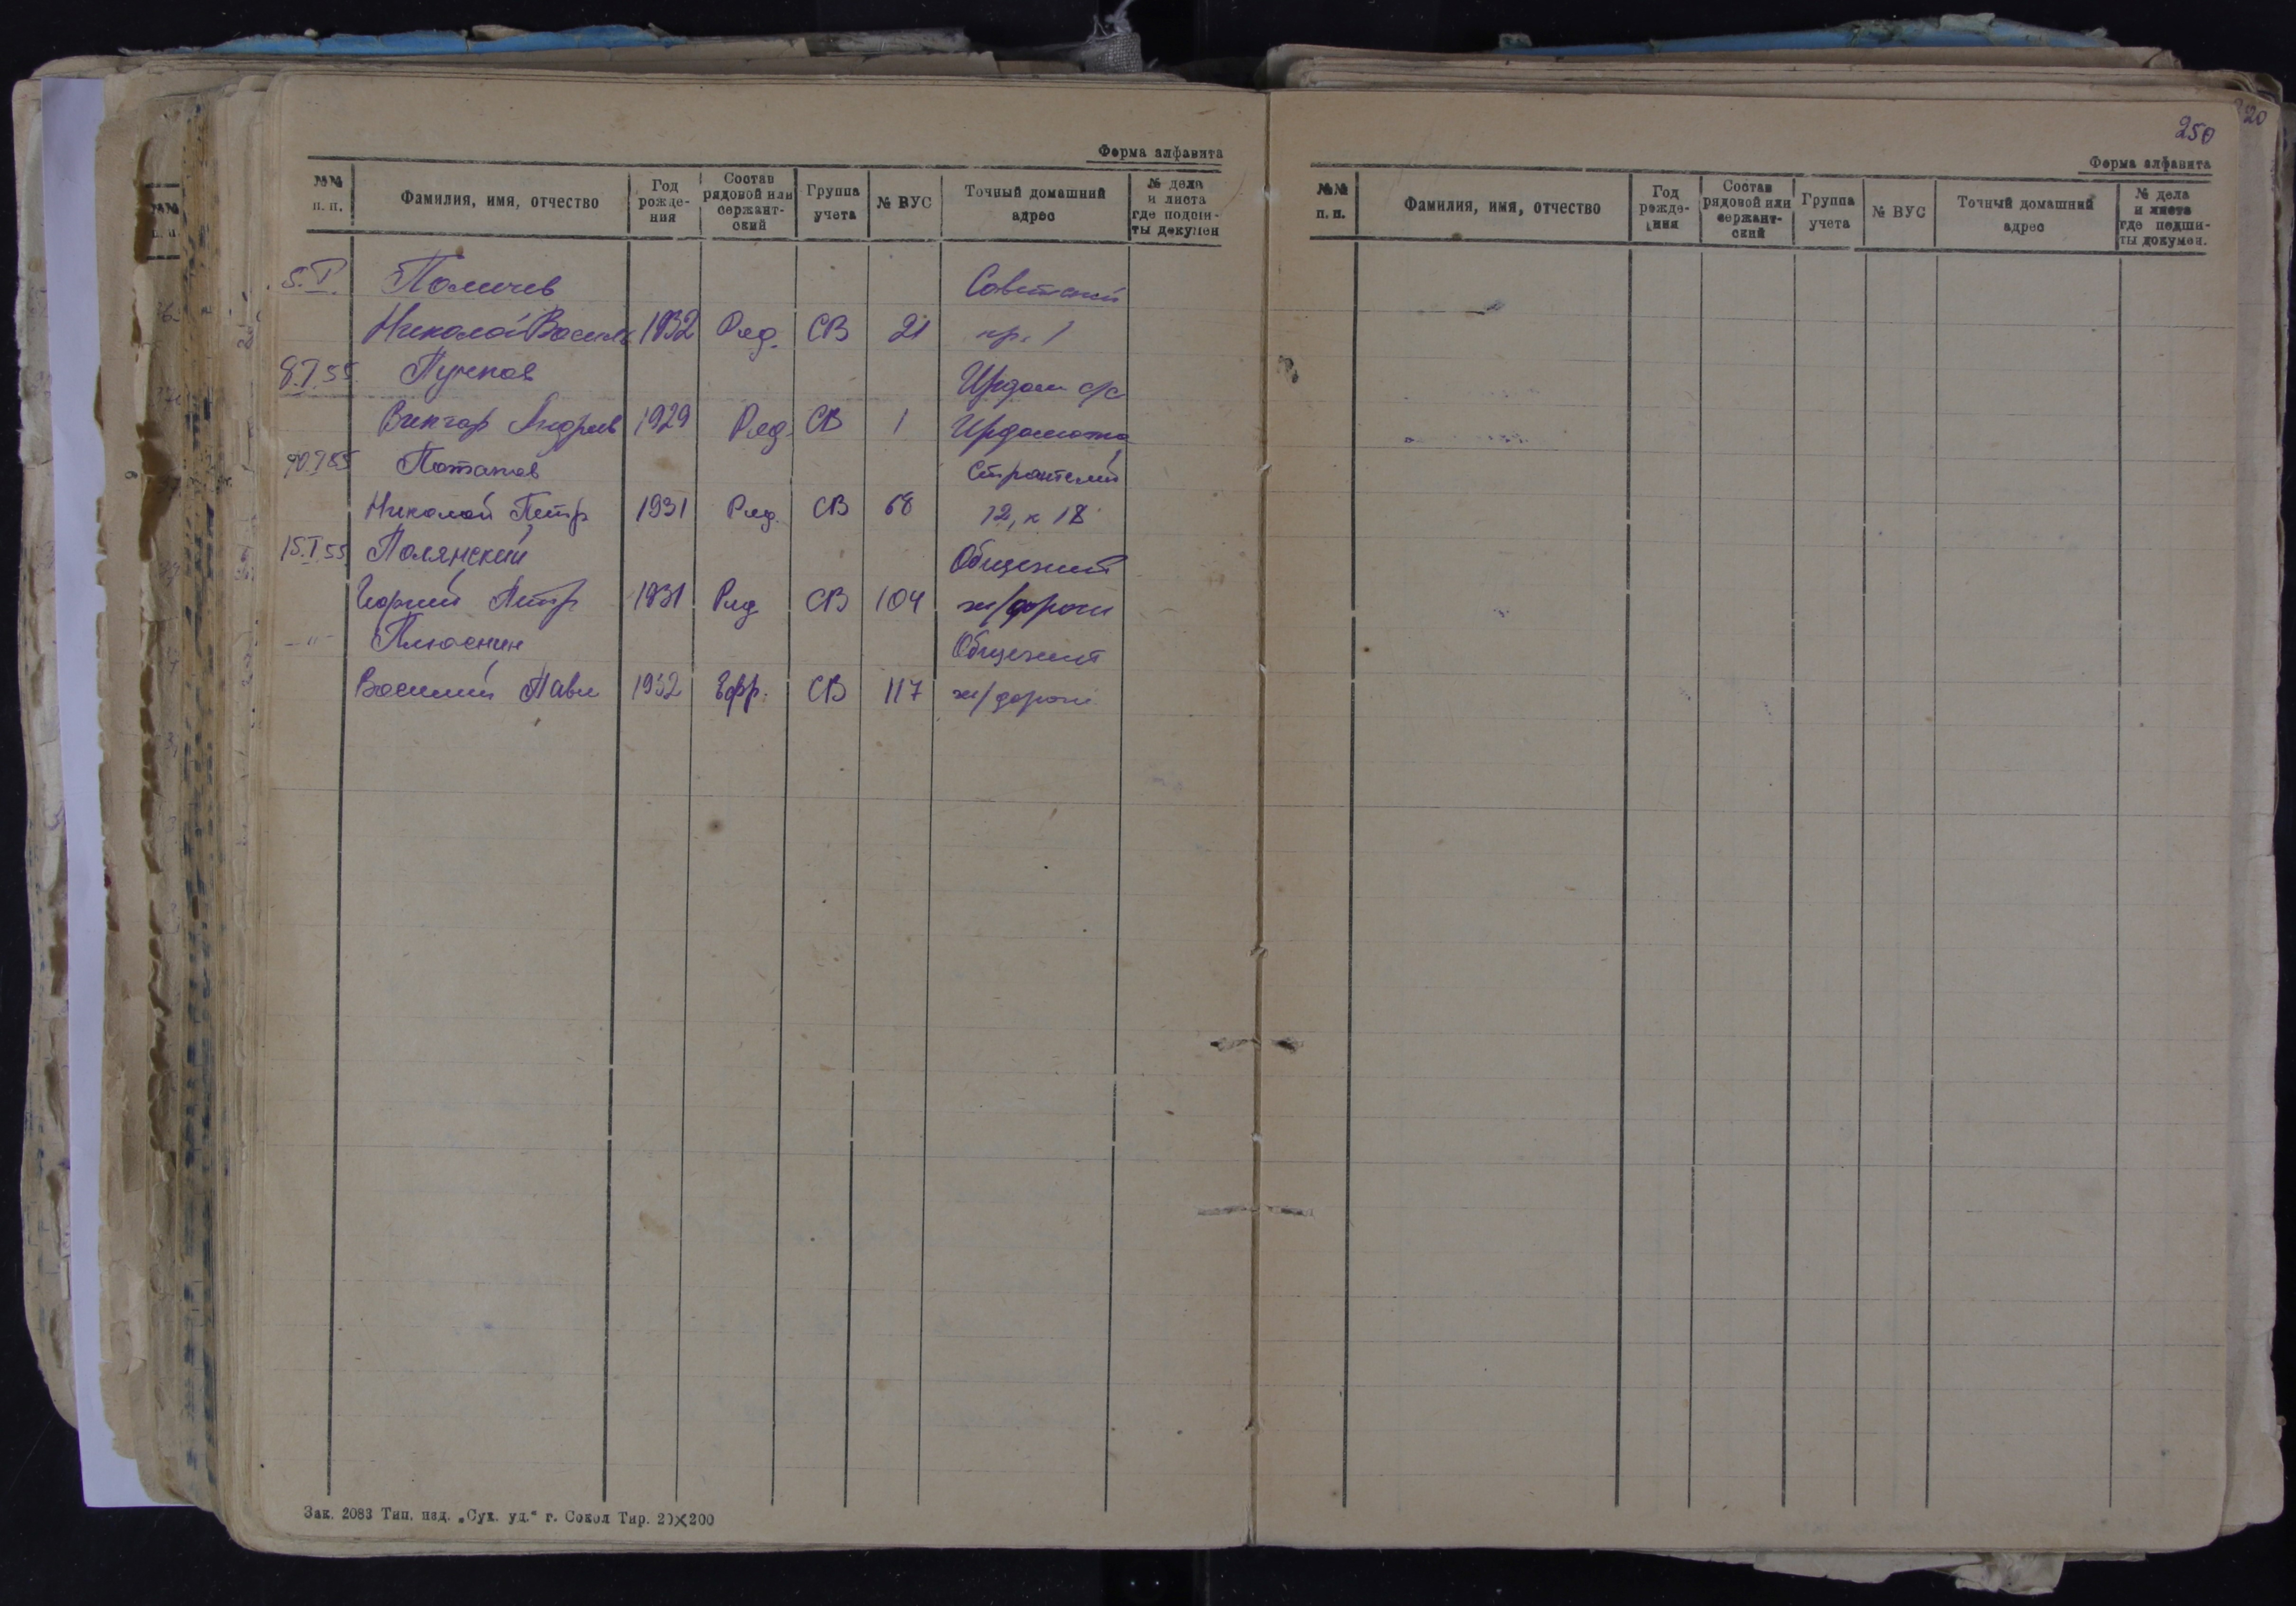 Форма алфавита
№№ п. п. Фамилия, имя, отчество Год рожде- ния Состав рядовой или сержант- ский Группа учета № ВУС Точный домашний адрес № дела и листа где подши- ты докумен
5.I. Поличев Советский
Николай Василь 1932 Ряд. СВ 21 пр. 1
8.I.55 Пучков Ирдом с/с
Виктор Андреев 1929 Ряд. СВ 1 Ирдоматка
Потапов Строителей
Николай Петр 1931 Ряд. СВ 68 12, к 18
15.I.55 Полянский Общежит
Георгий Петр 1931 Ряд СВ 104 ж/дороги
—"— Плюснин Общежит
Василий Павл 1932 Ефр. СВ 117 ж/дороги
Зак. 2083 Тип. изд. „Сух. уд.“ г. Сокол Тир. 20×200
20
250
Форма алфавита
№№ п. п. Фамилия, имя, отчество Год рожде- ния Состав рядовой или сержант- ский Группа учета № ВУС Точный домашний адрес № дела и листа где подши- ты докумен.